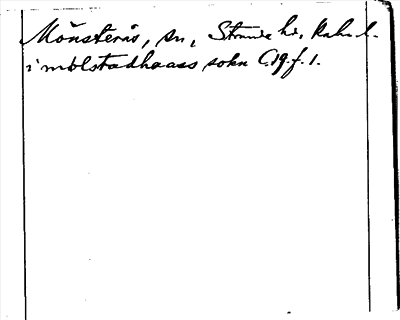 Mönsterås, sn, Stranda hd, Kalm. l.
i mölstadhaass sokn C 19. f. 1.